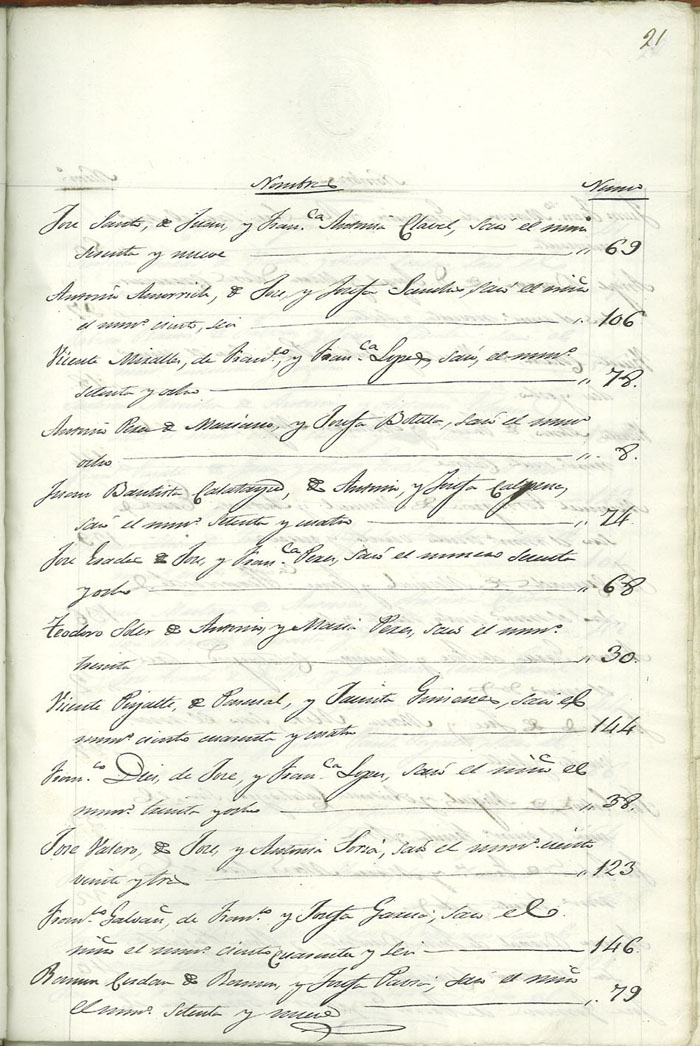 21
Nombres Numº
Jose Santo, de Juan, y Fran.ca Antonia Clavel, sacó el num.
sesenta y nueve „ 69
Antonio, de Jose, y Josefa Sanchis, sacó el niño
el num.º ciento, seis „ 106
Vicente Miralles, de Fran.co, y Fran.ca Lopes, sacó, el num.º
setenta y ocho „ 78.
Antonio Peres de Mariano, y Josefa Botella, sacó el num.
ocho „ 8.
Juan Bautista Calatayud, de Antonio, y Josefa
sacó el num.º setenta y cuatro „ 74
Jose de Jose, y Fran.ca Peres, sacó el numero sesenta
y ocho „ 68
Teodoro Soler de Antonio, y Maria Peres, sacó el num.º
treinta „ 30.
Vicente, de Pascual, y Jacinta Gimenes, sacó el
num.º ciento cuarenta y cuatro 144
Fran.co, de Jose, y Fran.ca Lopes, sacó el niño el
num.º treinta y ocho „ 38.
Jose Valero, de Jose, y Antonia, sacó el num.º ciento
veinte y tres „ 123
Fran.co Galvañ, de Fran.co y Josefa Garcia, sacó el
niño el num.º ciento cuarenta y seis 146.
Ramon Cerdan de Ramon, y Josefa, sacó el niño
el num.º setenta y nueve „ 79